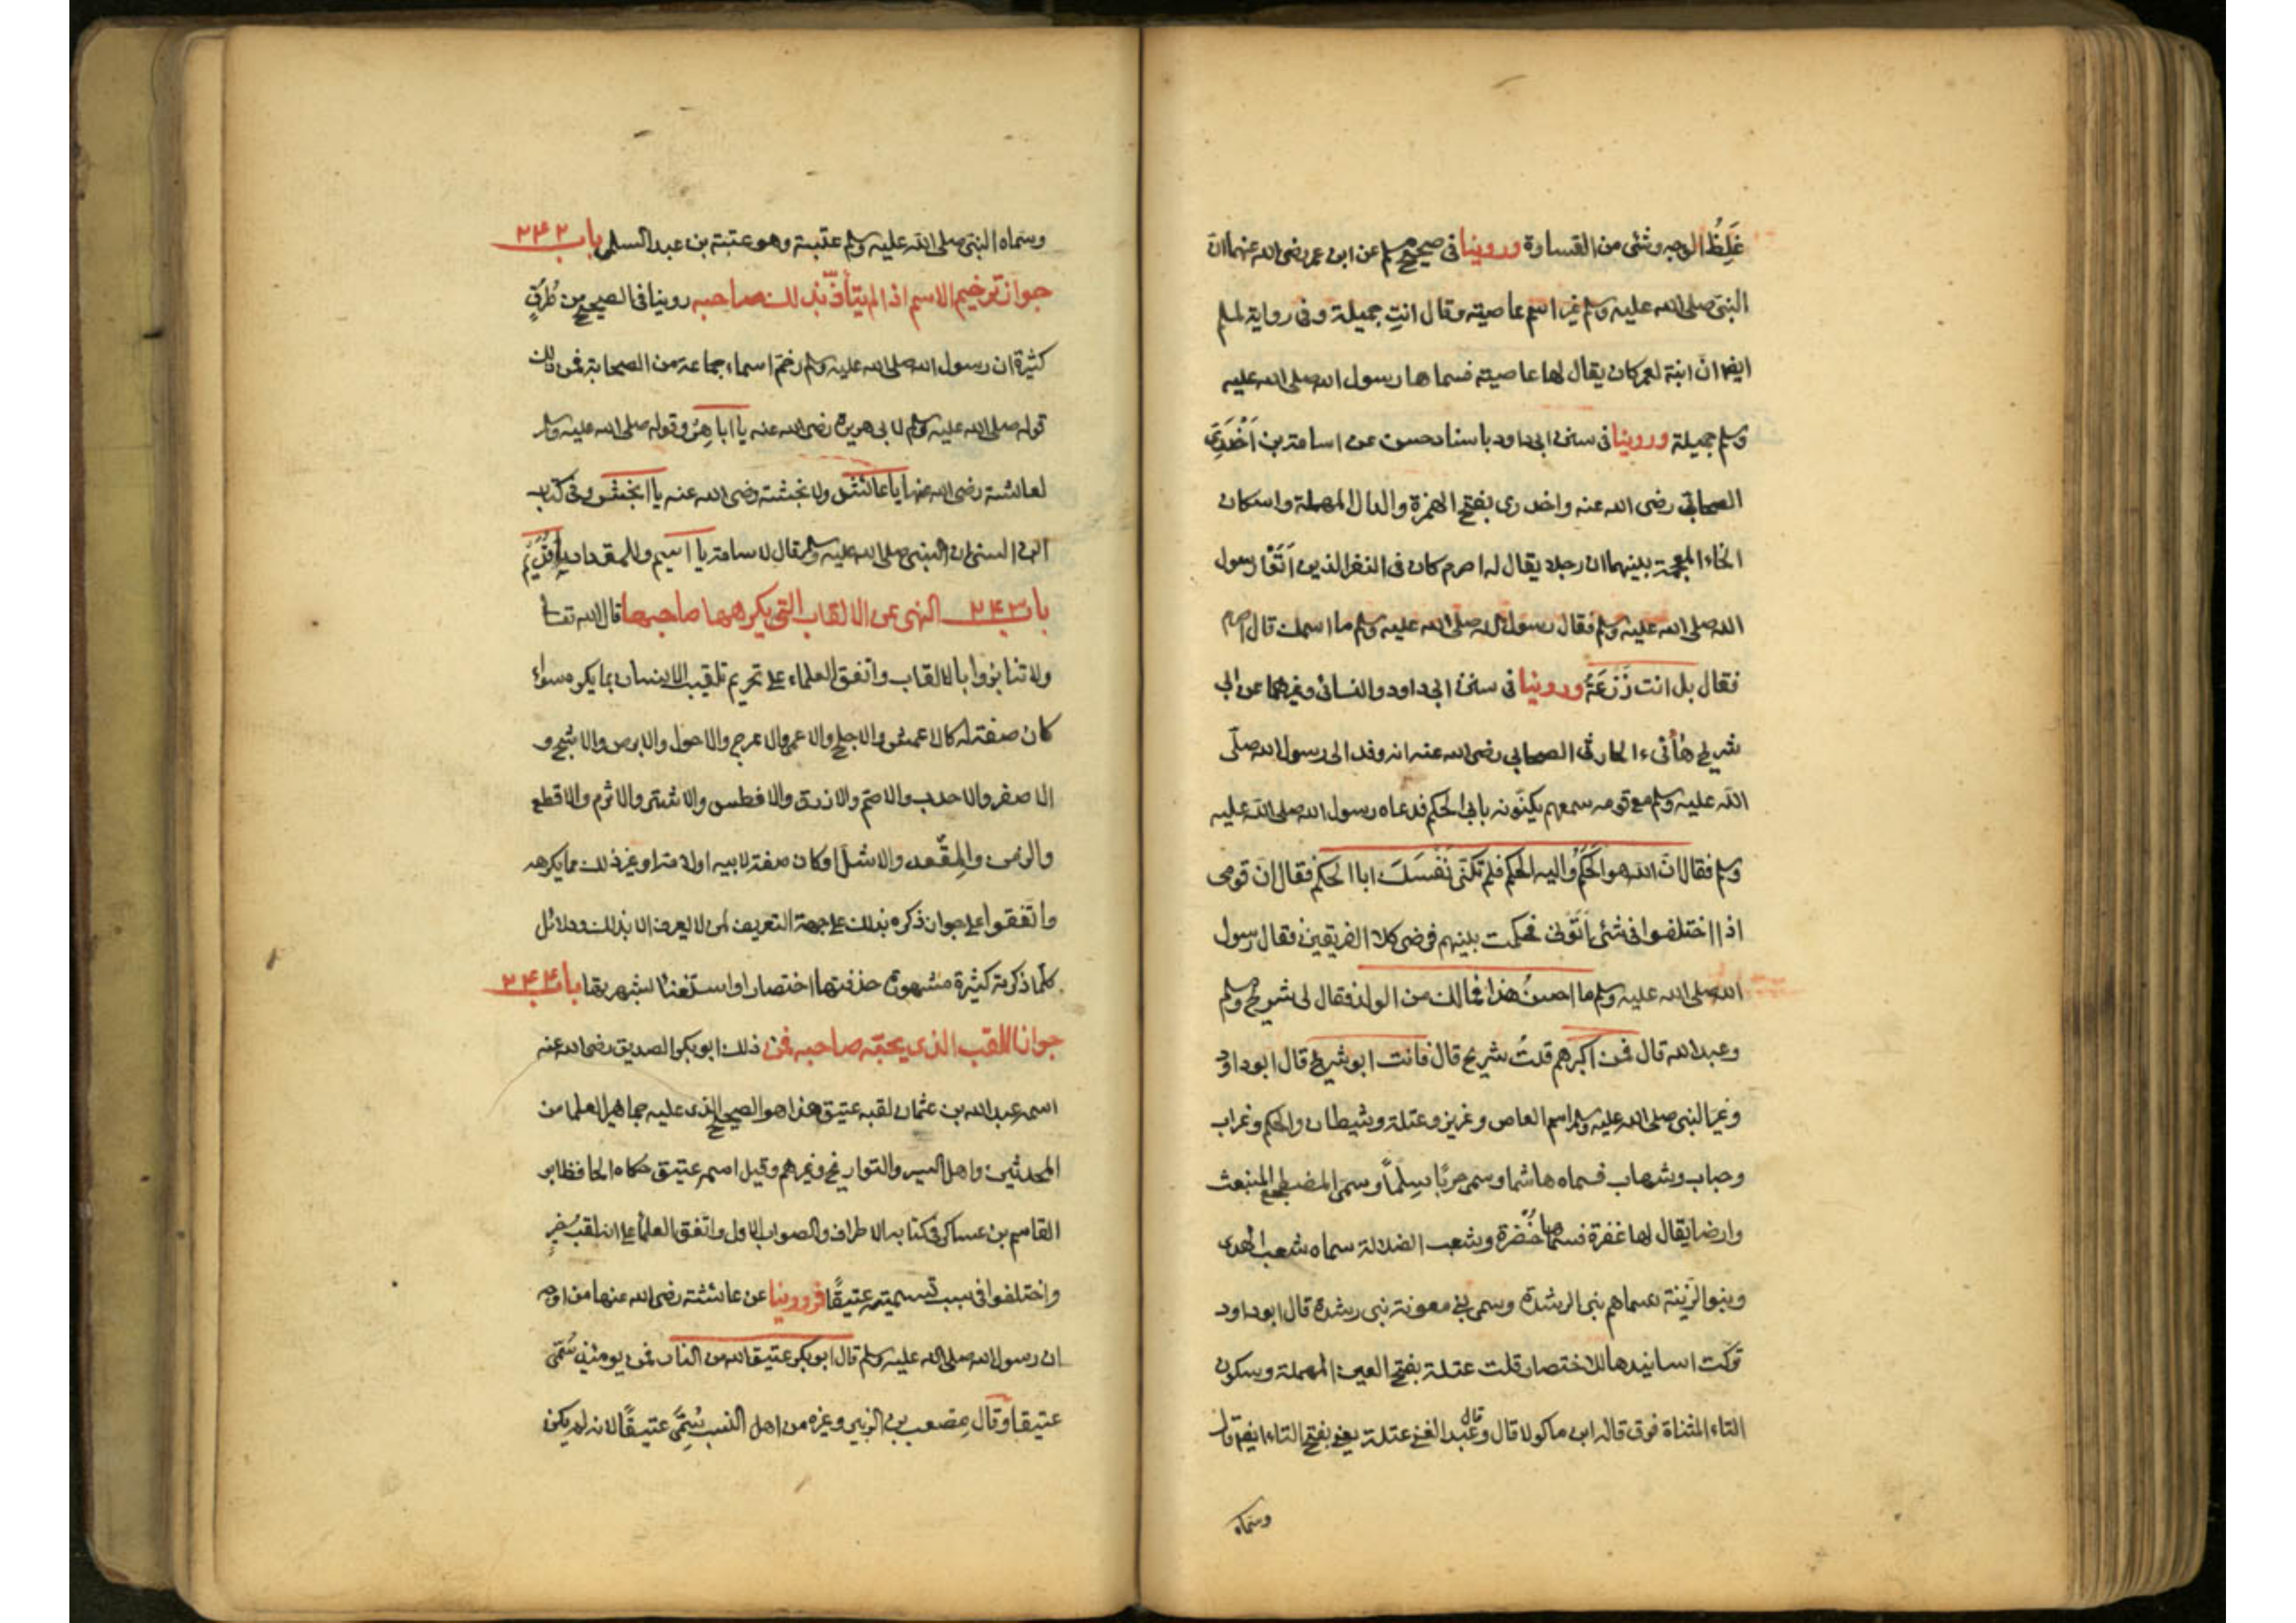 غَلِظُ الوجه وشئ من القساوة وروينا فى صحيح مسلم عن ابن عمر رضى الله عنهما ان
النبى صلى الله عليه وسلم غير اسم عاصية وقال انتِ جميلة وفى رواية لمسلم
ايضا انّ ابنة لعمر كان يقال لها عاصية فسماها رسول الله صلى الله عليه
وسلم جميلة وروينا فى سنن ابى داود باسناد حسن عن اسامة بن اَخْدَرِىّ
الصحابى رضى الله عنه واخدرى بفتح الهمزة والدال المهملة واسكان
الخاء المعجمة بينهما ان رجلا يقال له اصرم كان فى النفر الذين اَتَوْا رسول
الله صلى الله عليه وسلم فقال رسول الله صلى الله عليه وسلم ما اسمك قال اصرم
فقال بل انت زُرْعَةُ وروينا فى سنن ابى داود والنسائى وغيرهما عن ابى
شريح هأنىء الحارثى الصحابى رضى الله عنه انه وفد الى رسول الله صلّى
الله عليه وسلم مع قومه سمعهم يكنّونه بابى الحكم فدعاه رسول الله صلى الله عليه
وسلم فقال انّ الله هو الحَكَمُ واليه الحكم فلم تكنى نَفْسَكَ ابا الحكم فقال ان قومى
اذا اختلفوا فى شئ أَتَوْنى فحكمت بينهم فرضى كلا الفريقين فقال رسول
الله صلى الله عليه وسلم ما احسنُ هذا فمالك من الولد فقال لى شريح ومسلم
وعبد الله قال فمن اكبرهم قلتُ شريح قال فانت ابو شريح قال ابو داود
وغيّر النبى صلى الله عليه وسلم اسم العاص وعزيز وعتلة وشيطان والحكم وغراب
وحباب وشهاب فسماه هاشما وسمى حربًا سِلمًا وسمى المضطجع المنبعث
وارضا يقال لها عفرة فسماها خضرة وشعب الضلالة سماه شعب الهدى
وبنو الزينة سماهم بنى الرشدة وسمى بنى معوية بنى رشدة قال ابو داود
تركت اسانيدها للاختصار قلت عتلة بفتح العين المهملة وسكون
التاء المثناة فوق قاله ابن ماكولا قال وقال عبد الغنى عتلة يعنى بفتح التاء ايضا قال
وسماه
وسماه النبى صلى الله عليه وسلم عتبة وهو عتبة بن عبد السلمى باب ٢٤٢
جواز ترخيم الاسم اذا لم يتأذّ بذلك صاحبه روينا فى الصحيح من طُرُقٍ
كثيرة ان رسول الله صلى الله عليه وسلم رخّم اسماء جماعة من الصحابة فمن ذلك
قوله صلى الله عليه وسلم لابى هريرة رضى الله عنه يا ابا هِرّ وقوله صلى الله عليه وسلم
لعائشة رضى الله عنها يا عائش ولانجشة رضى الله عنه يا انجش وفى كتاب
ابن السنى ان النبى صلى الله عليه وسلم قال لاسامة يا اسيم وللمقداد يا قُدَيْمُ
باب ٢٤٣ النهى عن الالقاب التى يكرهها صاحبها قال الله تعا
ولا تنابزوا بالالقاب واتفق العلماء على تحريم تلقيب الانسان بما يكره سواء
كان صفة له كالاعمش والاجلح والاعمى والاعرج والاحول والابرص والاشج و
الاصفر والاحدب والاصم والازرق والافطس والاشتر والاثرم والاقطع
والزمن والمقعد والاشلّ او كان صفة لابيه او لامه او غير ذلك مما يكرهه
واتّفقوا على جواز ذكره بذلك على جهة التعريف لمن لا يعرف الا بذلك ودلائل
كلّما ذكرته كثيرة مشهورة حذفتها اختصارا واستغناء لشهرتها باب ٢٤٤
جواز اللقب الذى يحبّه صاحبه فمن ذلك ابو بكر الصديق رضى الله عنه
اسمه عبد الله بن عثمان لقبه عتيق هذا هو الصحيح الذى عليه جماهير العلما من
المحدثين واهل السير والتواريخ وغيرهم وقيل اسمه عتيق حكاه الحافظ ابو
القاسم بن عساكر فى كتابه الاطراف والصواب الاول واتّفق العلماء على انه لقب خير
واختلفوا فى سبب تسميته عتيقًا فروينا عن عائشة رضى الله عنها من اوجه
ان رسول الله صلى الله عليه وسلم قال ابو بكر عتيق الله من النار فمن يومئذ سُمّى
عتيقا وقال مصعب بن الزبير وغيره من اهل النسب سُمِّىَ عتيقًا لانه لم يكن